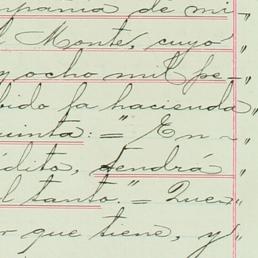 mpañia de mi-"
l Monte, cuyo "
y ocho mil pe-"
bido la hacienda "
quinta: = "En- "
édito, tendrá "
l tanto." = Que- "
r que tiene, y "